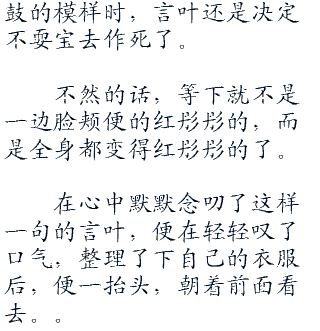 鼓的模样时，言叶还是决定
不耍宝去作死了。
不然的话，等下就不是
一边脸颊便的红彤彤的，而
是全身都变得红彤彤的了。
在心中默默念叨了这样
一句的言叶，便在轻轻叹了
口气，整理了下自己的衣服
后，便一抬头，朝着前面看
去。。